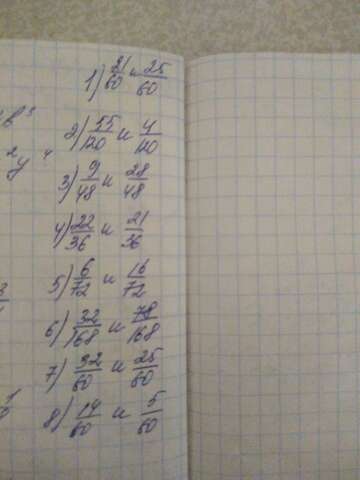 1) 21/60 и 25/60
2) 55/120 и 4/120
3) 9/48 и 28/48
4) 22/36 и 21/36
5) 6/72 и 16/72
6) 32/168 и 78/168
7) 32/60 и 25/60
8) 14/60 и 5/60